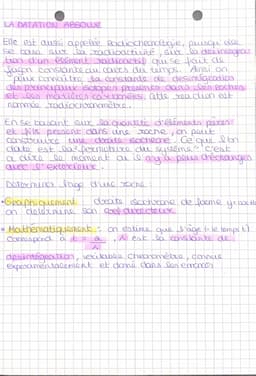 LA DATATION ABSOLUE
Elle est aussi appelée Radiochronologie, puisqu'elle
se base sur la radioactivité, sur la désintégra
tion d'un élément radioactif qui se fait de
façon constante au cours du temps. Ainsi on
peux connaître la constante de désintégration
des principaux isotopes présents dans les roches
et les matières carbonées, cette réaction est
nommée radiochronomètre.
En se basant sur la quantité d'éléments pères
et fils présent dans une roche, on peut
construire une droite isochrone. Ce que l'on
date est la "fermeture du système" c'est
à dire le moment où il n'y a plus d'échanges
avec l'extérieur.
Déterminer l'âge d'une roche
• Graphiquement : droite isochrone de forme y=
on détermine son coef directeur
• Mathématiquement : on estime que l'âge (= le temps t)
correspond à t = a/λ, λ est la constante de
désintégration, véritable chronomètre, connue
expérimentalement et donné dans les énoncés